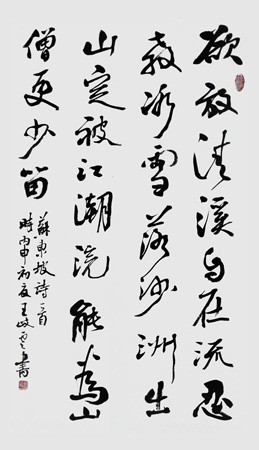 欲放清溪自在流忍
教冰雪落沙洲出
山定被江潮浣能為山
僧更少留
蘇東坡詩一首
時丙申初夏王岐書